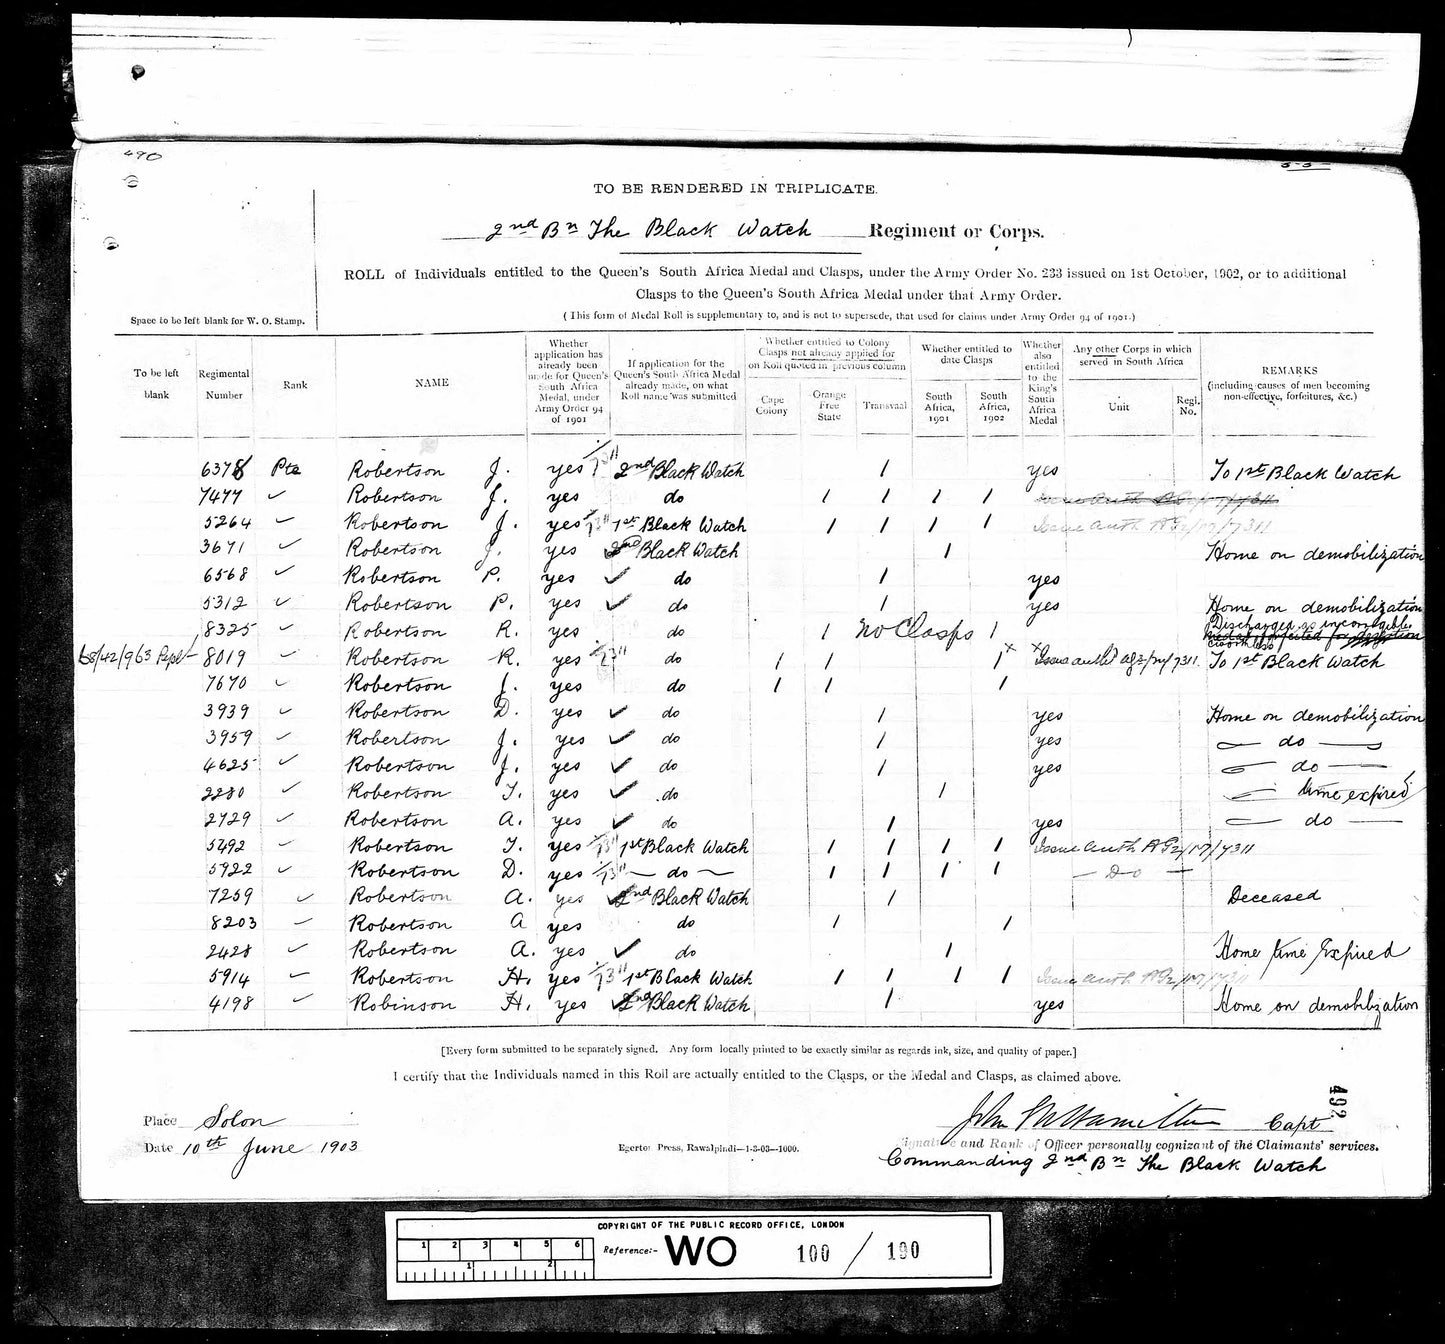 490
TO BE RENDERED IN TRIPLICATE.
2nd Bn The Black Watch Regiment or Corps.
ROLL of Individuals entitled to the Queen's South Africa Medal and Clasps, under the Army Order No. 233 issued on 1st October, 1902, or to additional
Clasps to the Queen's South Africa Medal under that Army Order.
(This form of Medal Roll is supplementary to, and is not to supersede, that used for claims under Army Order 94 of 1901.)
Space to be left blank for W. O. Stamp.
To be left blank
Regimental Number
Rank
NAME
Whether application has already been made for Queen's South Africa Medal, under Army Order 94 of 1901
If application for the Queen's South Africa Medal already made, on what Roll name was submitted
Whether entitled to Colony Clasps not already applied for on Roll quoted in previous column
Cape Colony
Orange Free State
Transvaal
Whether entitled to date Clasps
South Africa, 1901
South Africa, 1902
Whether also entitled to the King's South Africa Medal
Any other Corps in which served in South Africa
Unit
Regl. No.
REMARKS
(including causes of men becoming non-effective, forfeitures, &c.)
6378 Pte Robertson J. yes 7311 2nd Black Watch / yes To 1st Black Watch
7477 ✓ Robertson J. yes do / / / /
5264 ✓ Robertson J. yes 7311 1st Black Watch / / / / Issue auth AG2/M/7311
3671 ✓ Robertson J. yes 2nd Black Watch / Home on demobilization
6568 ✓ Robertson P. yes ✓ do / yes
5312 ✓ Robertson P. yes ✓ do / yes Home on demobilization
8325 ✓ Robertson R. yes do / No Clasps / Discharged as incorrigible & worthless
68/42/963 8019 ✓ Robertson R. yes 7311 do / / / × × Issue auth AG2/M/7311. To 1st Black Watch
7670 ✓ Robertson J. yes do / / /
3939 ✓ Robertson D. yes ✓ do / yes Home on demobilization
3959 ✓ Robertson J. yes ✓ do / yes — do —
4625 ✓ Robertson J. yes ✓ do / yes — do —
2280 ✓ Robertson T. yes ✓ do / — time expired
2729 ✓ Robertson A. yes ✓ do / yes — do —
5492 ✓ Robertson T. yes 7311 1st Black Watch / / / / Issue auth AG2/M/7311
5922 ✓ Robertson D. yes 7311 — do — / / / / — Do —
7259 ✓ Robertson A. yes ✓ 2nd Black Watch / Deceased
8203 ✓ Robertson A yes do / /
2428 ✓ Robertson A. yes ✓ do / Home time Expired
5914 ✓ Robertson H. yes 7311 1st Black Watch / / / / Issue auth AG2/M/7311
4198 ✓ Robinson H. yes ✓ 2nd Black Watch / yes Home on demobilization
[Every form submitted to be separately signed. Any form locally printed to be exactly similar as regards ink, size, and quality of paper.]
I certify that the Individuals named in this Roll are actually entitled to the Clasps, or the Medal and Clasps, as claimed above.
492
Place Solon
John Hamilton Capt
Signature and Rank of Officer personally cognizant of the Claimants' services.
Date 10th June 1903
Egerton Press, Rawalpindi—1-3-03—1000.
Commanding 2nd Bn The Black Watch
COPYRIGHT OF THE PUBLIC RECORD OFFICE, LONDON
1 2 3 4 5 6
1 2
Reference:- WO 100 / 190